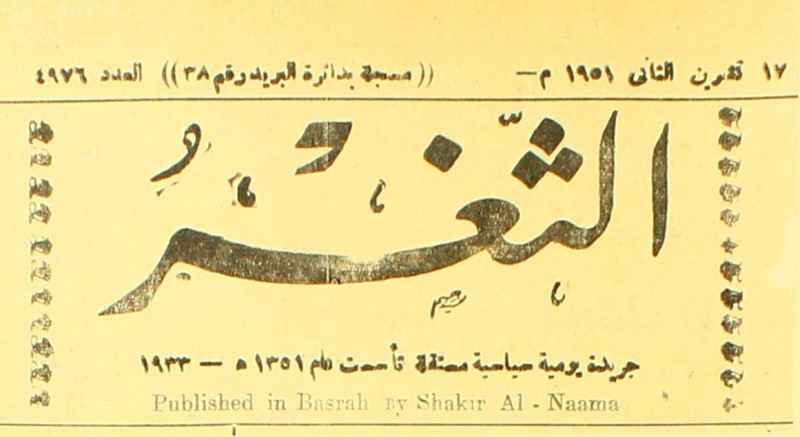 ١٧ تشرين الثانى ١٩٥١ م— ((مسجلة بدائرة البريد رقم ٣٨)) العدد ٤٩٧٦
الثَّغْرُ
جريدة يومية سياسية مستقلة تأسست عام ١٣٥١ ه — ١٩٣٣
Published in Basrah By Shakir Al - Naama